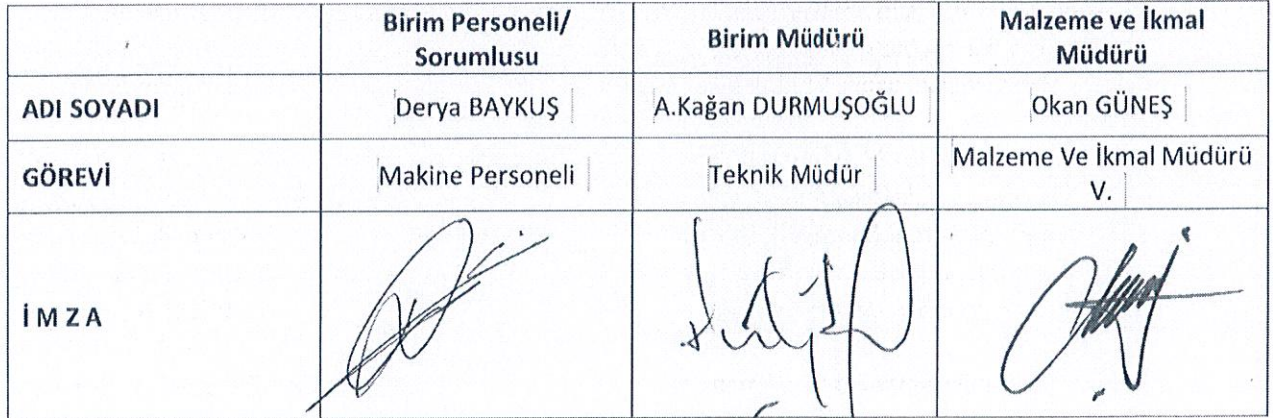 Birim Personeli/
Sorumlusu
Birim Müdürü
Malzeme ve İkmal
Müdürü
ADI SOYADI
Derya BAYKUŞ
A.Kağan DURMUŞOĞLU
Okan GÜNEŞ
GÖREVİ
Makine Personeli
Teknik Müdür
Malzeme Ve İkmal Müdürü
V.
İ M Z A